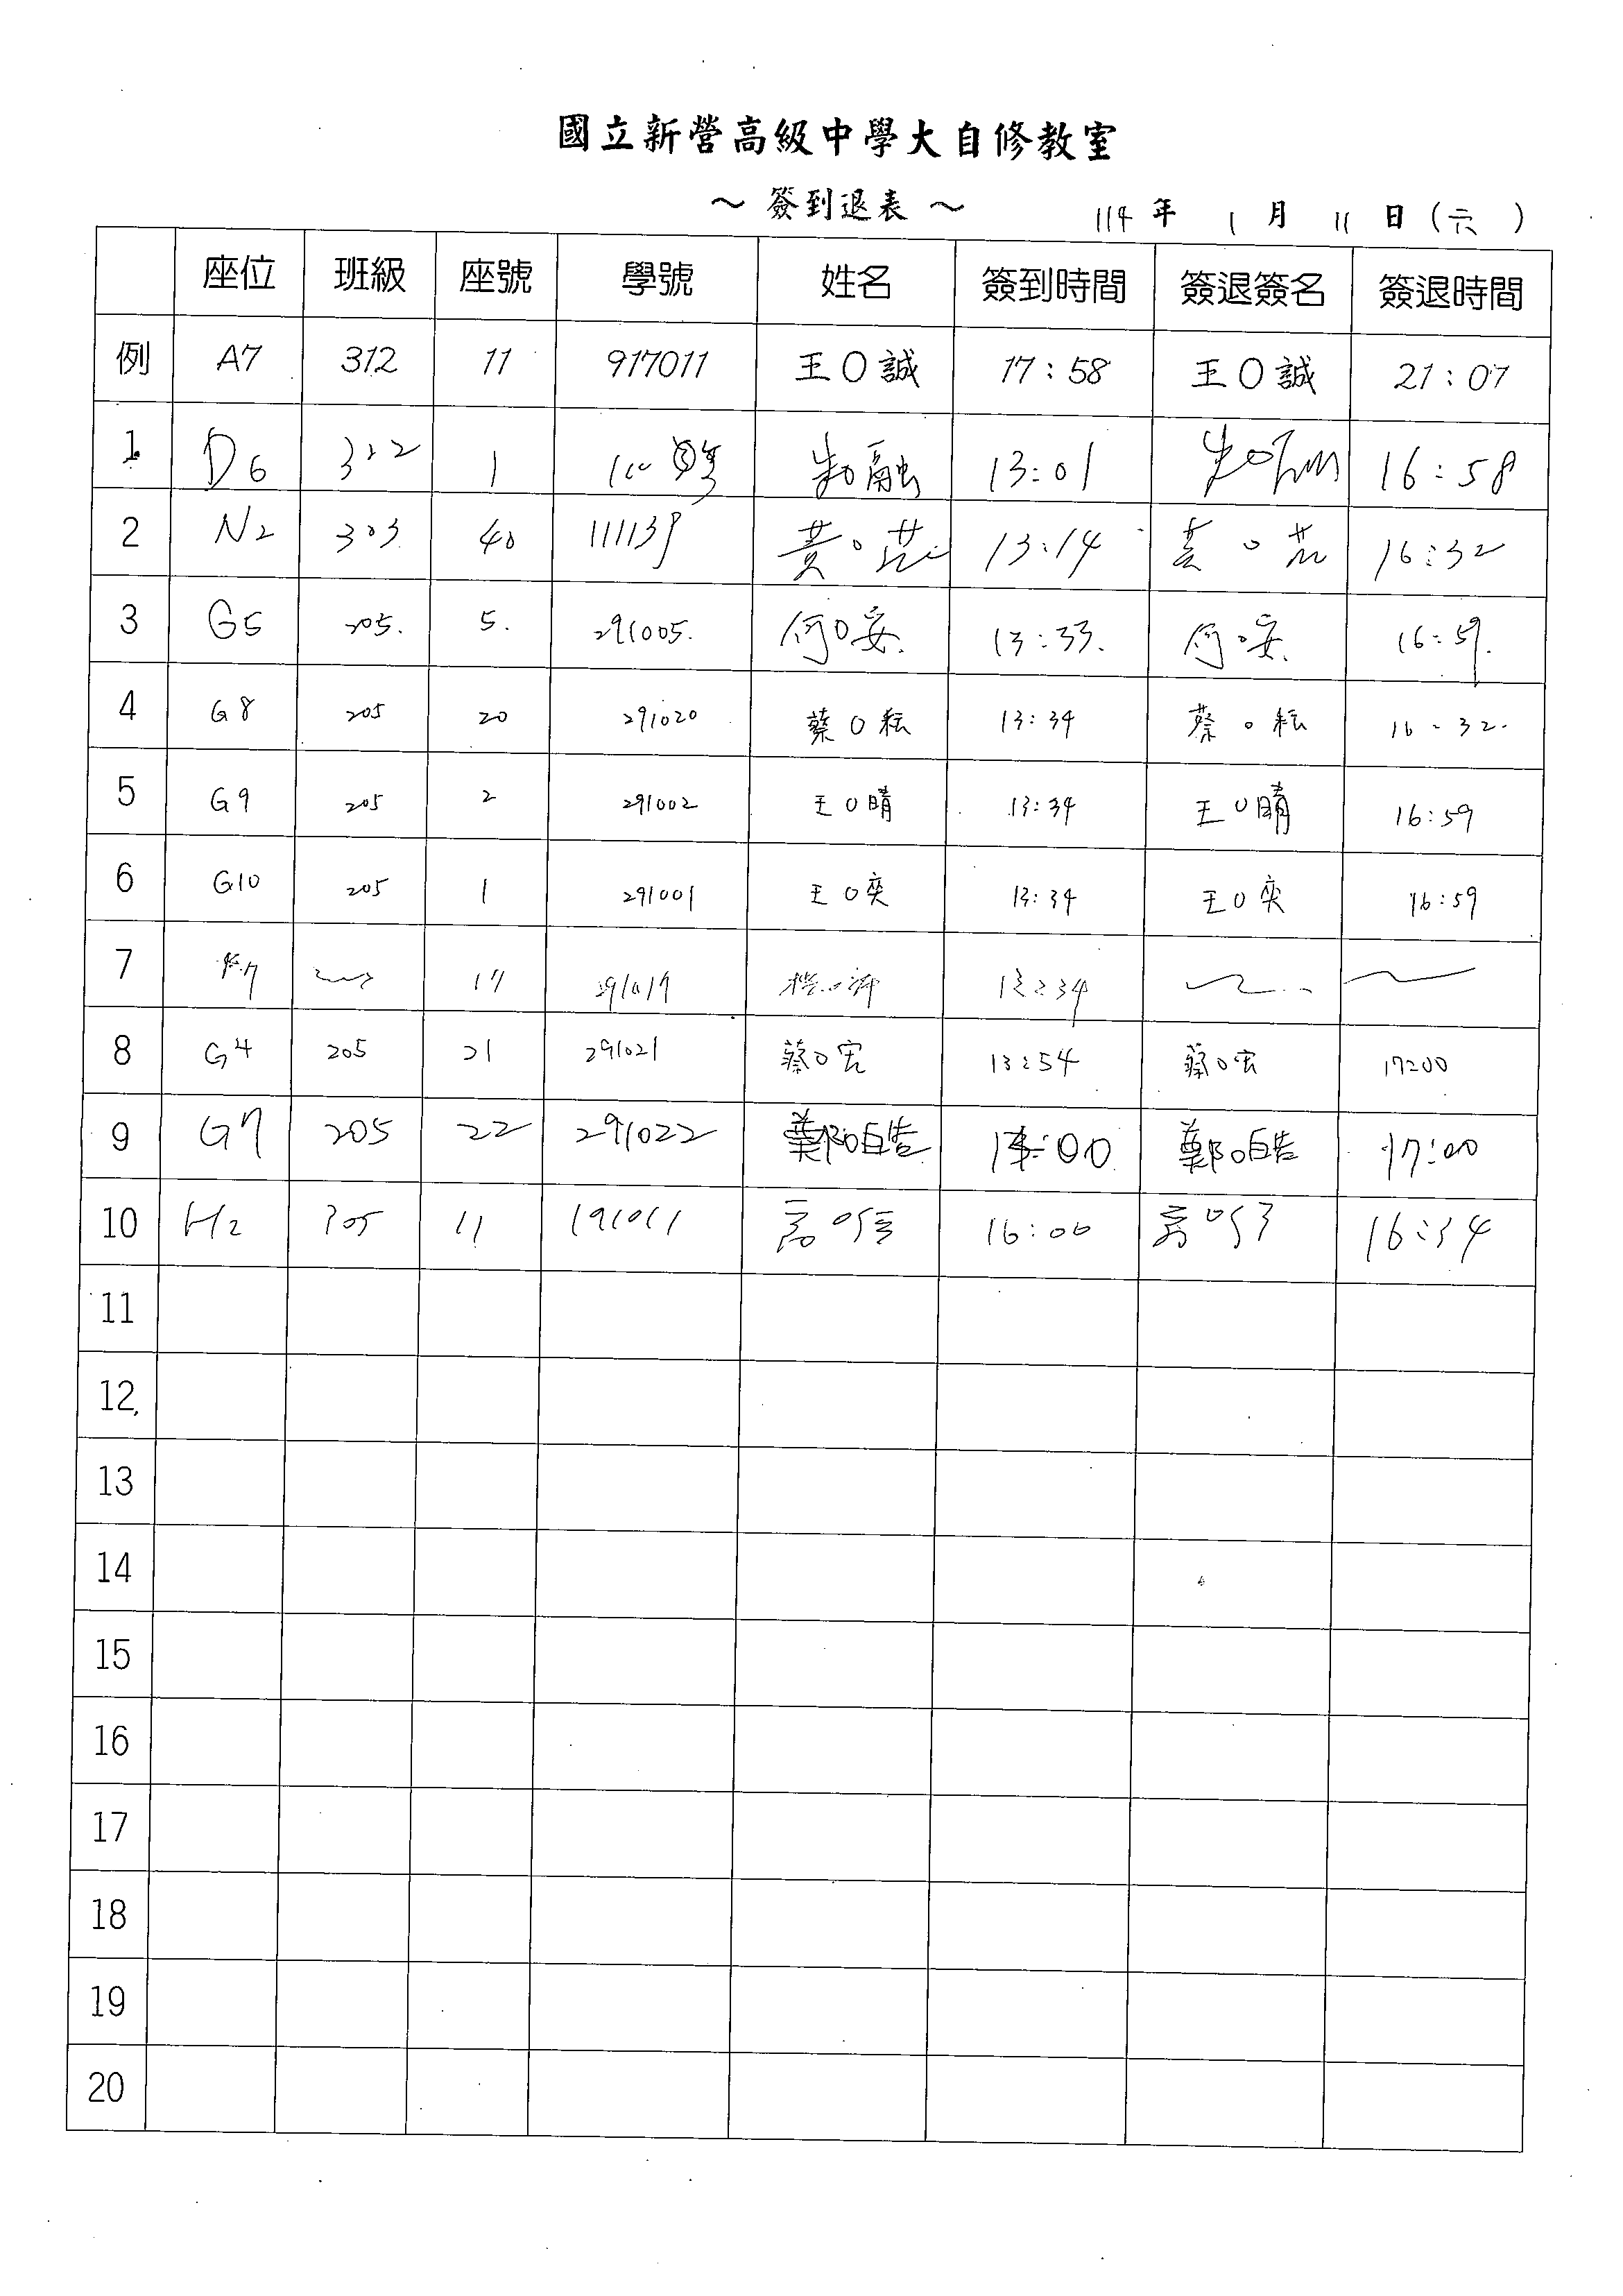 國立新營高級中學大自修教室
～ 簽到退表 ～ 114 年 1 月 11 日 (六 )
座位 班級 座號 學號 姓名 簽到時間 簽退簽名 簽退時間
例 A7 312 11 917011 王O誠 17:58 王O誠 21:07
1 D6 312 1 13:01 16:58
2 N2 303 40 111139 黃O 13:14 黃O 16:32
3 G5 205. 5. 291005. 何O妥. 13:33. 何O妥. 16:59.
4 G8 205 20 291020 蔡O耘 13:34 蔡O耘 16:32.
5 G9 205 2 291002 王O晴 13:34 王O晴 16:59
6 G10 205 1 291001 王O奕 13:34 王O奕 16:59
7 17 291017 13:34
8 G4 205 21 291021 蔡O宏 13:54 蔡O宏 17:00
9 G7 205 22 291022 鄭O皓 14:00 鄭O皓 17:00
10 H2 305 11 191011 高O 16:00 高O 16:34
11
12
13
14
15
16
17
18
19
20